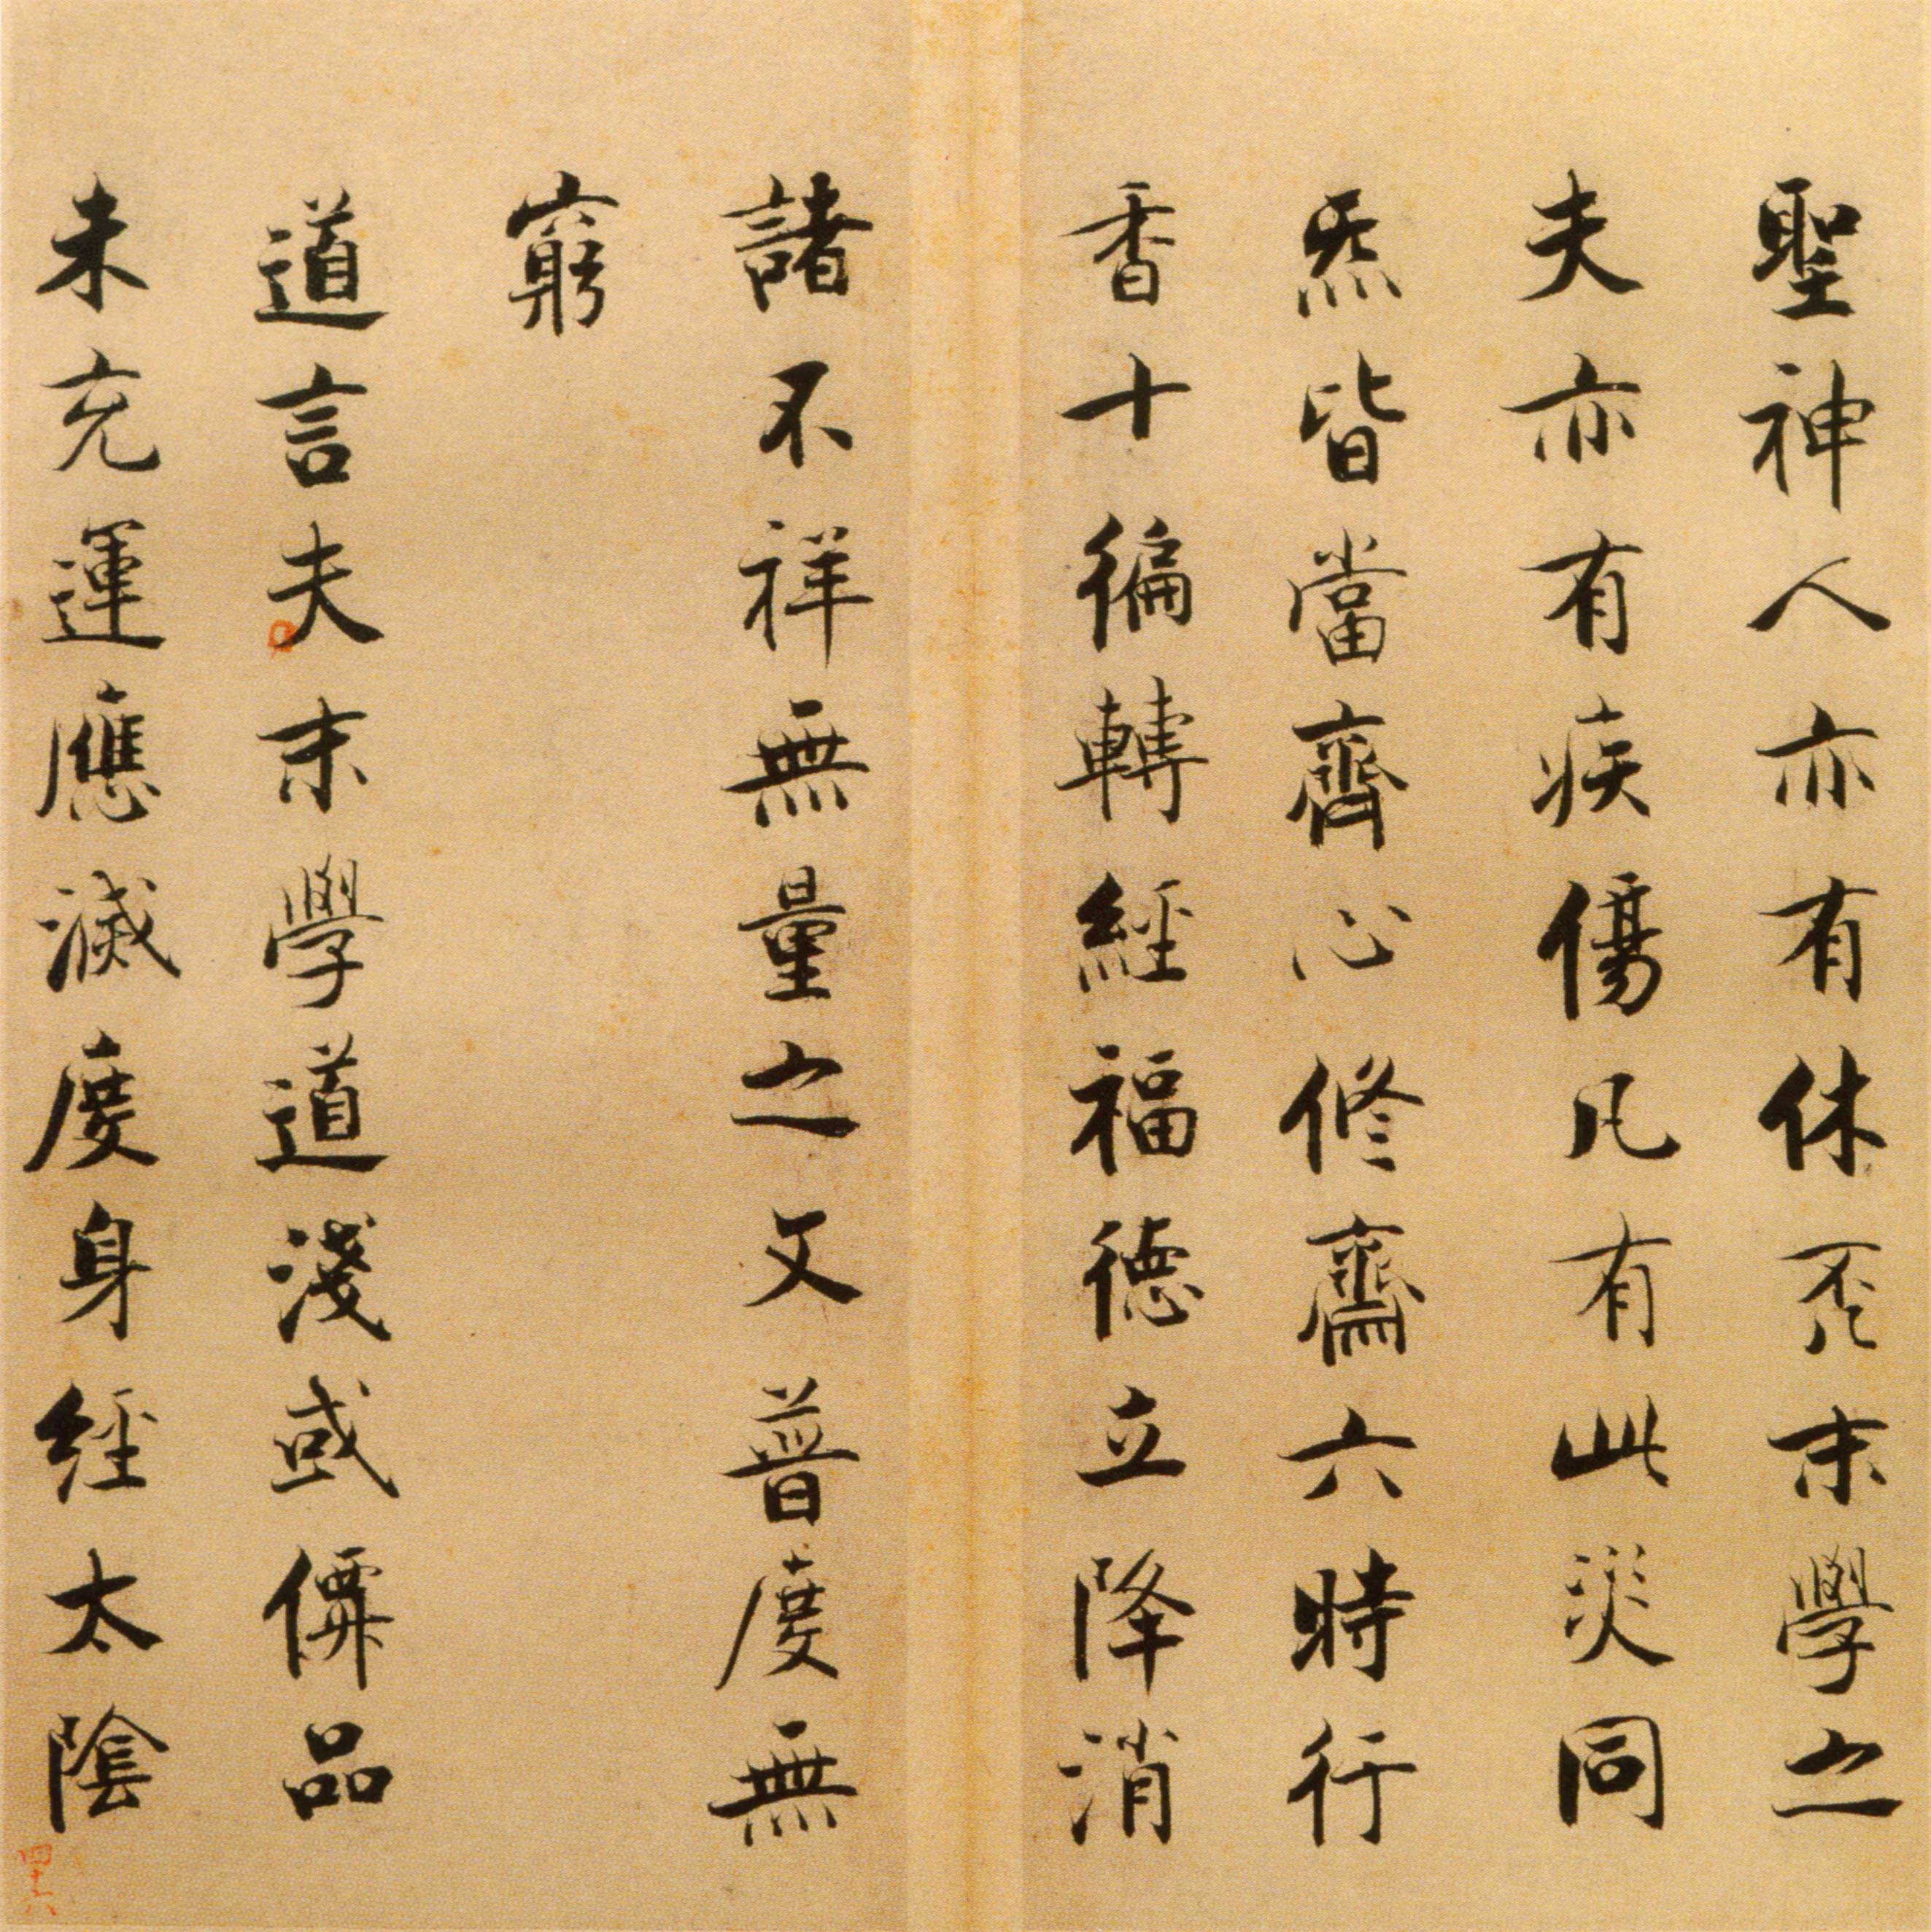 聖神人亦有休否末學之
夫亦有疾傷凡有此災同
炁皆當齊心修齋六時行
香十徧轉經福德立降消
諸不祥無量之文普度無
窮
道言夫末學道淺或僊品
未充運應滅度身經太陰
四十六